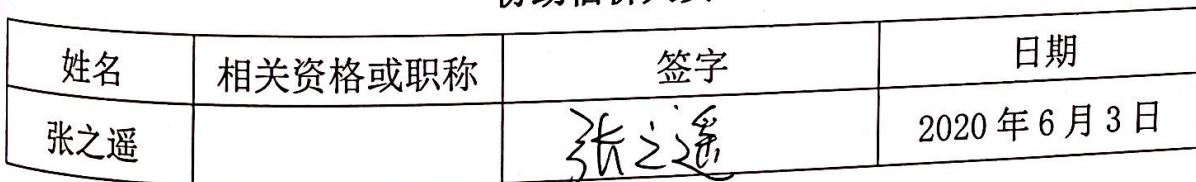 协助估价人员
姓名 相关资格或职称 签字 日期
张之遥 张之遥 2020年6月3日